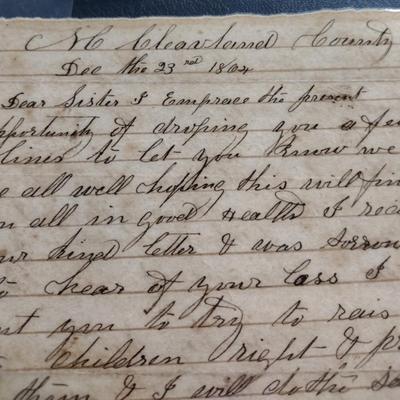 NC Cleavland County
Dec the 23rd 1864
Dear Sister I Embrace the present
opportunity of droping you a few
lines to let you know we
all well hopting this will fin
all in good Health I rec
kind letter & was Sorrow
to hear of your Loss I
you to try to rais
children right & pr
them & I will do the sa